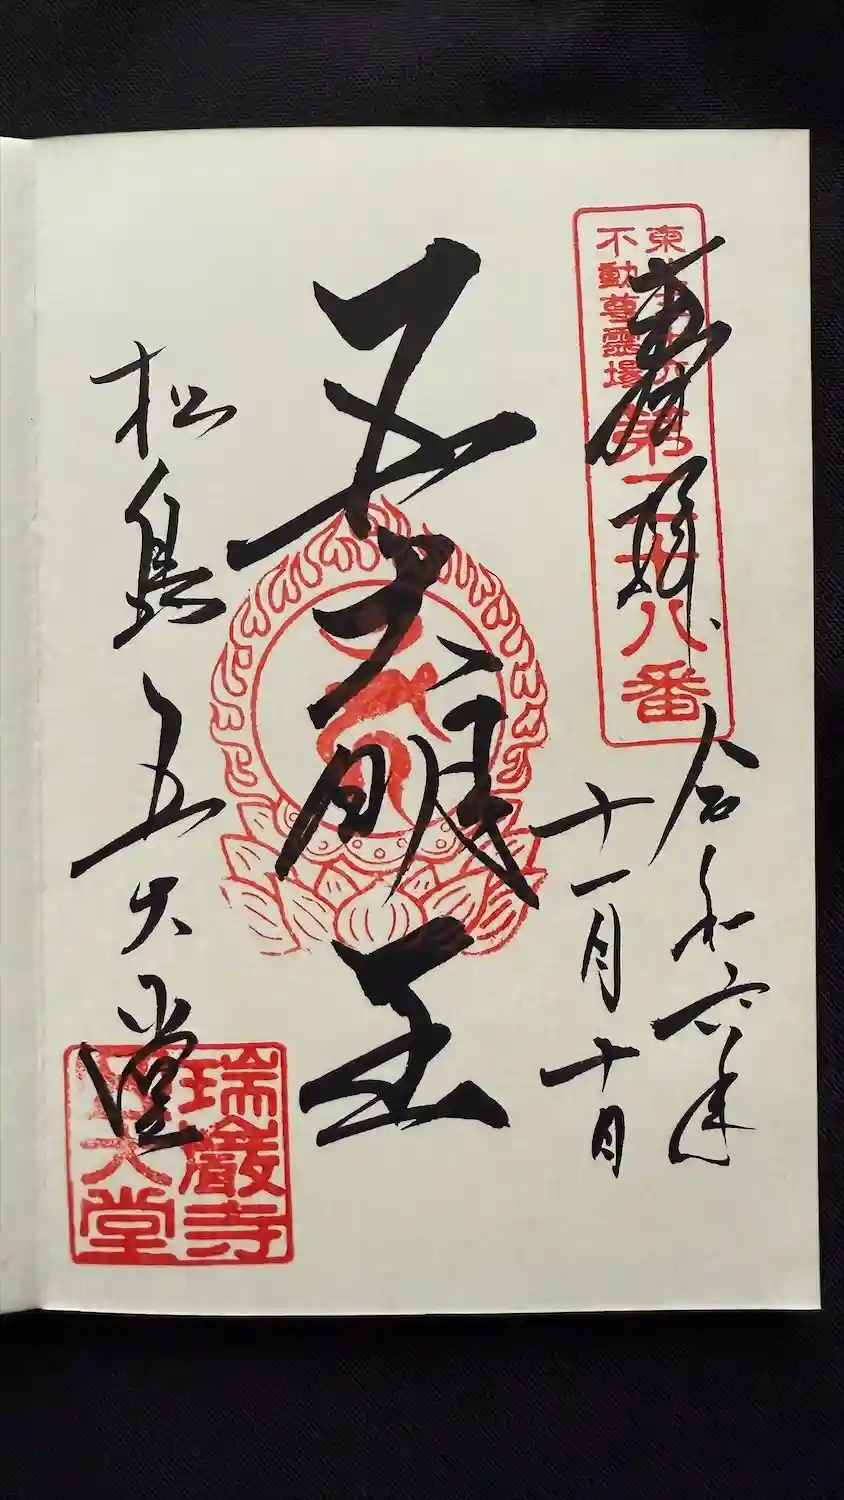 東北三十六
不動尊霊場
第二十八番
奉拝
令和六年
十一月十日
五大明王
松島 五大堂
瑞巌寺
五大堂